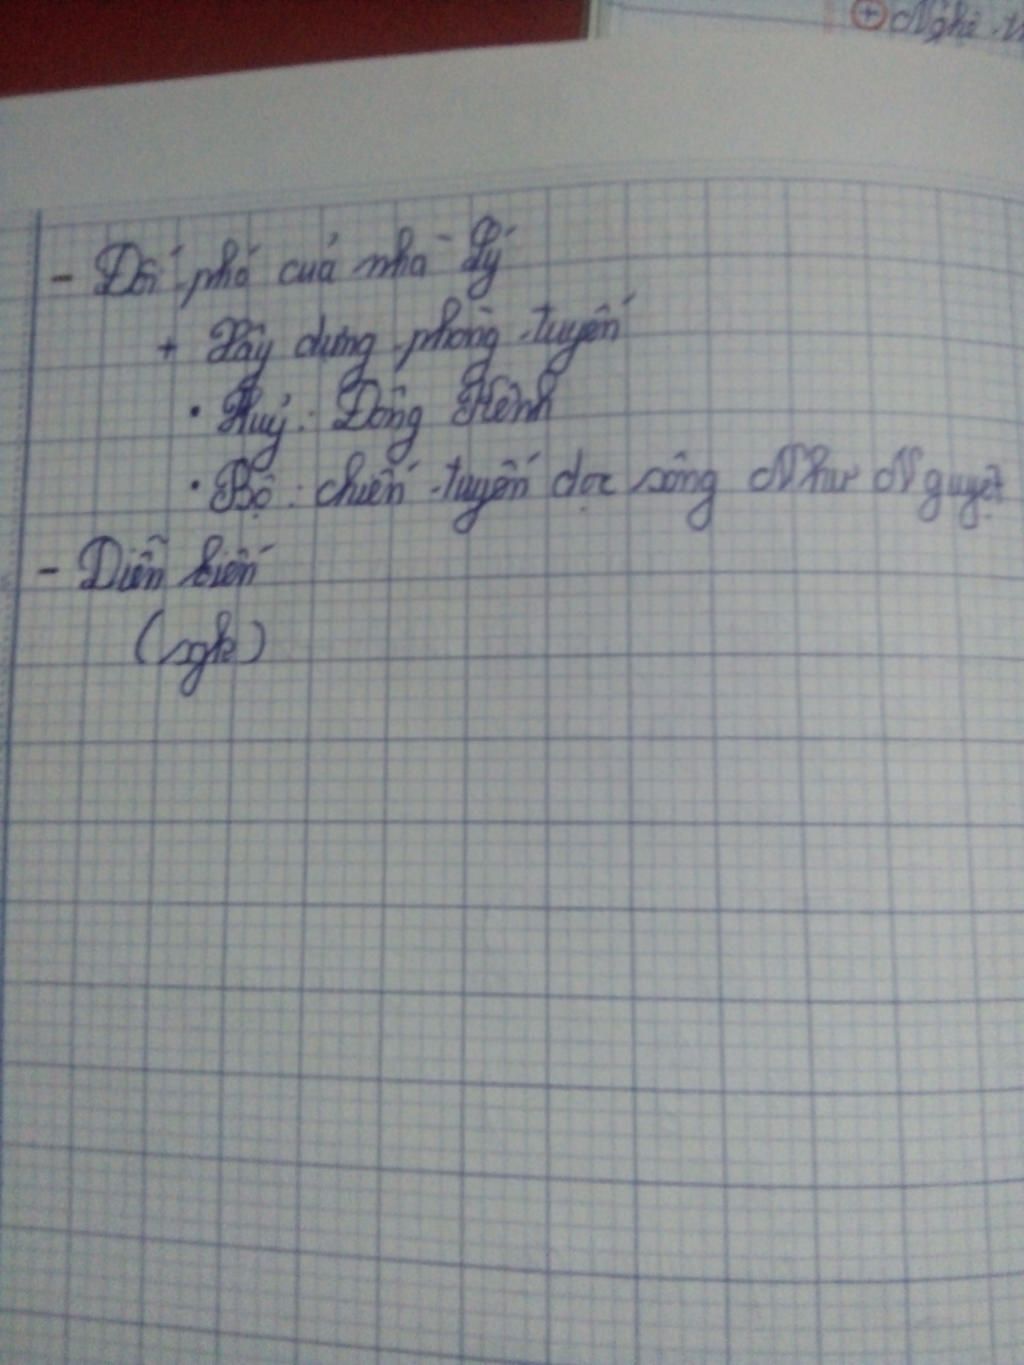 ⊕ Nghệ
- Đối phó của nhà Lý
+ Xây dựng phòng tuyến
• Thuỷ: Đông Kênh
• Bộ: chiến tuyến dọc sông Như Nguyệt
- Diễn biến
(sgk)